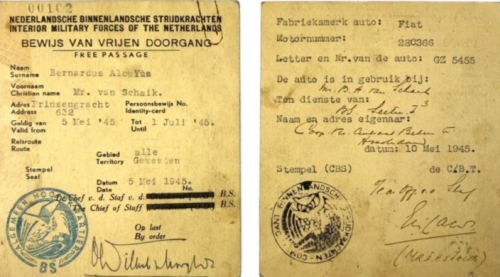 00102
NEDERLANDSCHE BINNENLANDSCHE STRIJDKRACHTEN
INTERIOR MILITARY FORCES OF THE NETHERLANDS
BEWIJS VAN VRIJEN DOORGANG
FREE PASSAGE
Naam
Surname Bernardus
Voornaam
Christian name Mr. van Schaik.
Adres Prinsengracht Persoonsbewijs No.
Address 632 Identity-card
Geldig van 5 Mei '45 Tot 1 Juli '45.
Valid from Until
Reisroute
Route Gebied alle
Territory Gebieden
Stempel
Seal Datum 5 Mei 1945.
De Chef v. d. Staf v. d. B.S.
The Chief of Staff B.S.
Op last
By order
BS
Fabrieksmerk auto: Fiat
Motornummer: 280366
Letter en Nr. van de auto: GZ 5455
De auto is in gebruik bij:
Mr. B. A. van Schaik
Ten dienste van:
BS
Naam en adres eigenaar:
Amsterdam
datum: 10 Mei 1945.
Stempel (CBS) de C/B.T.